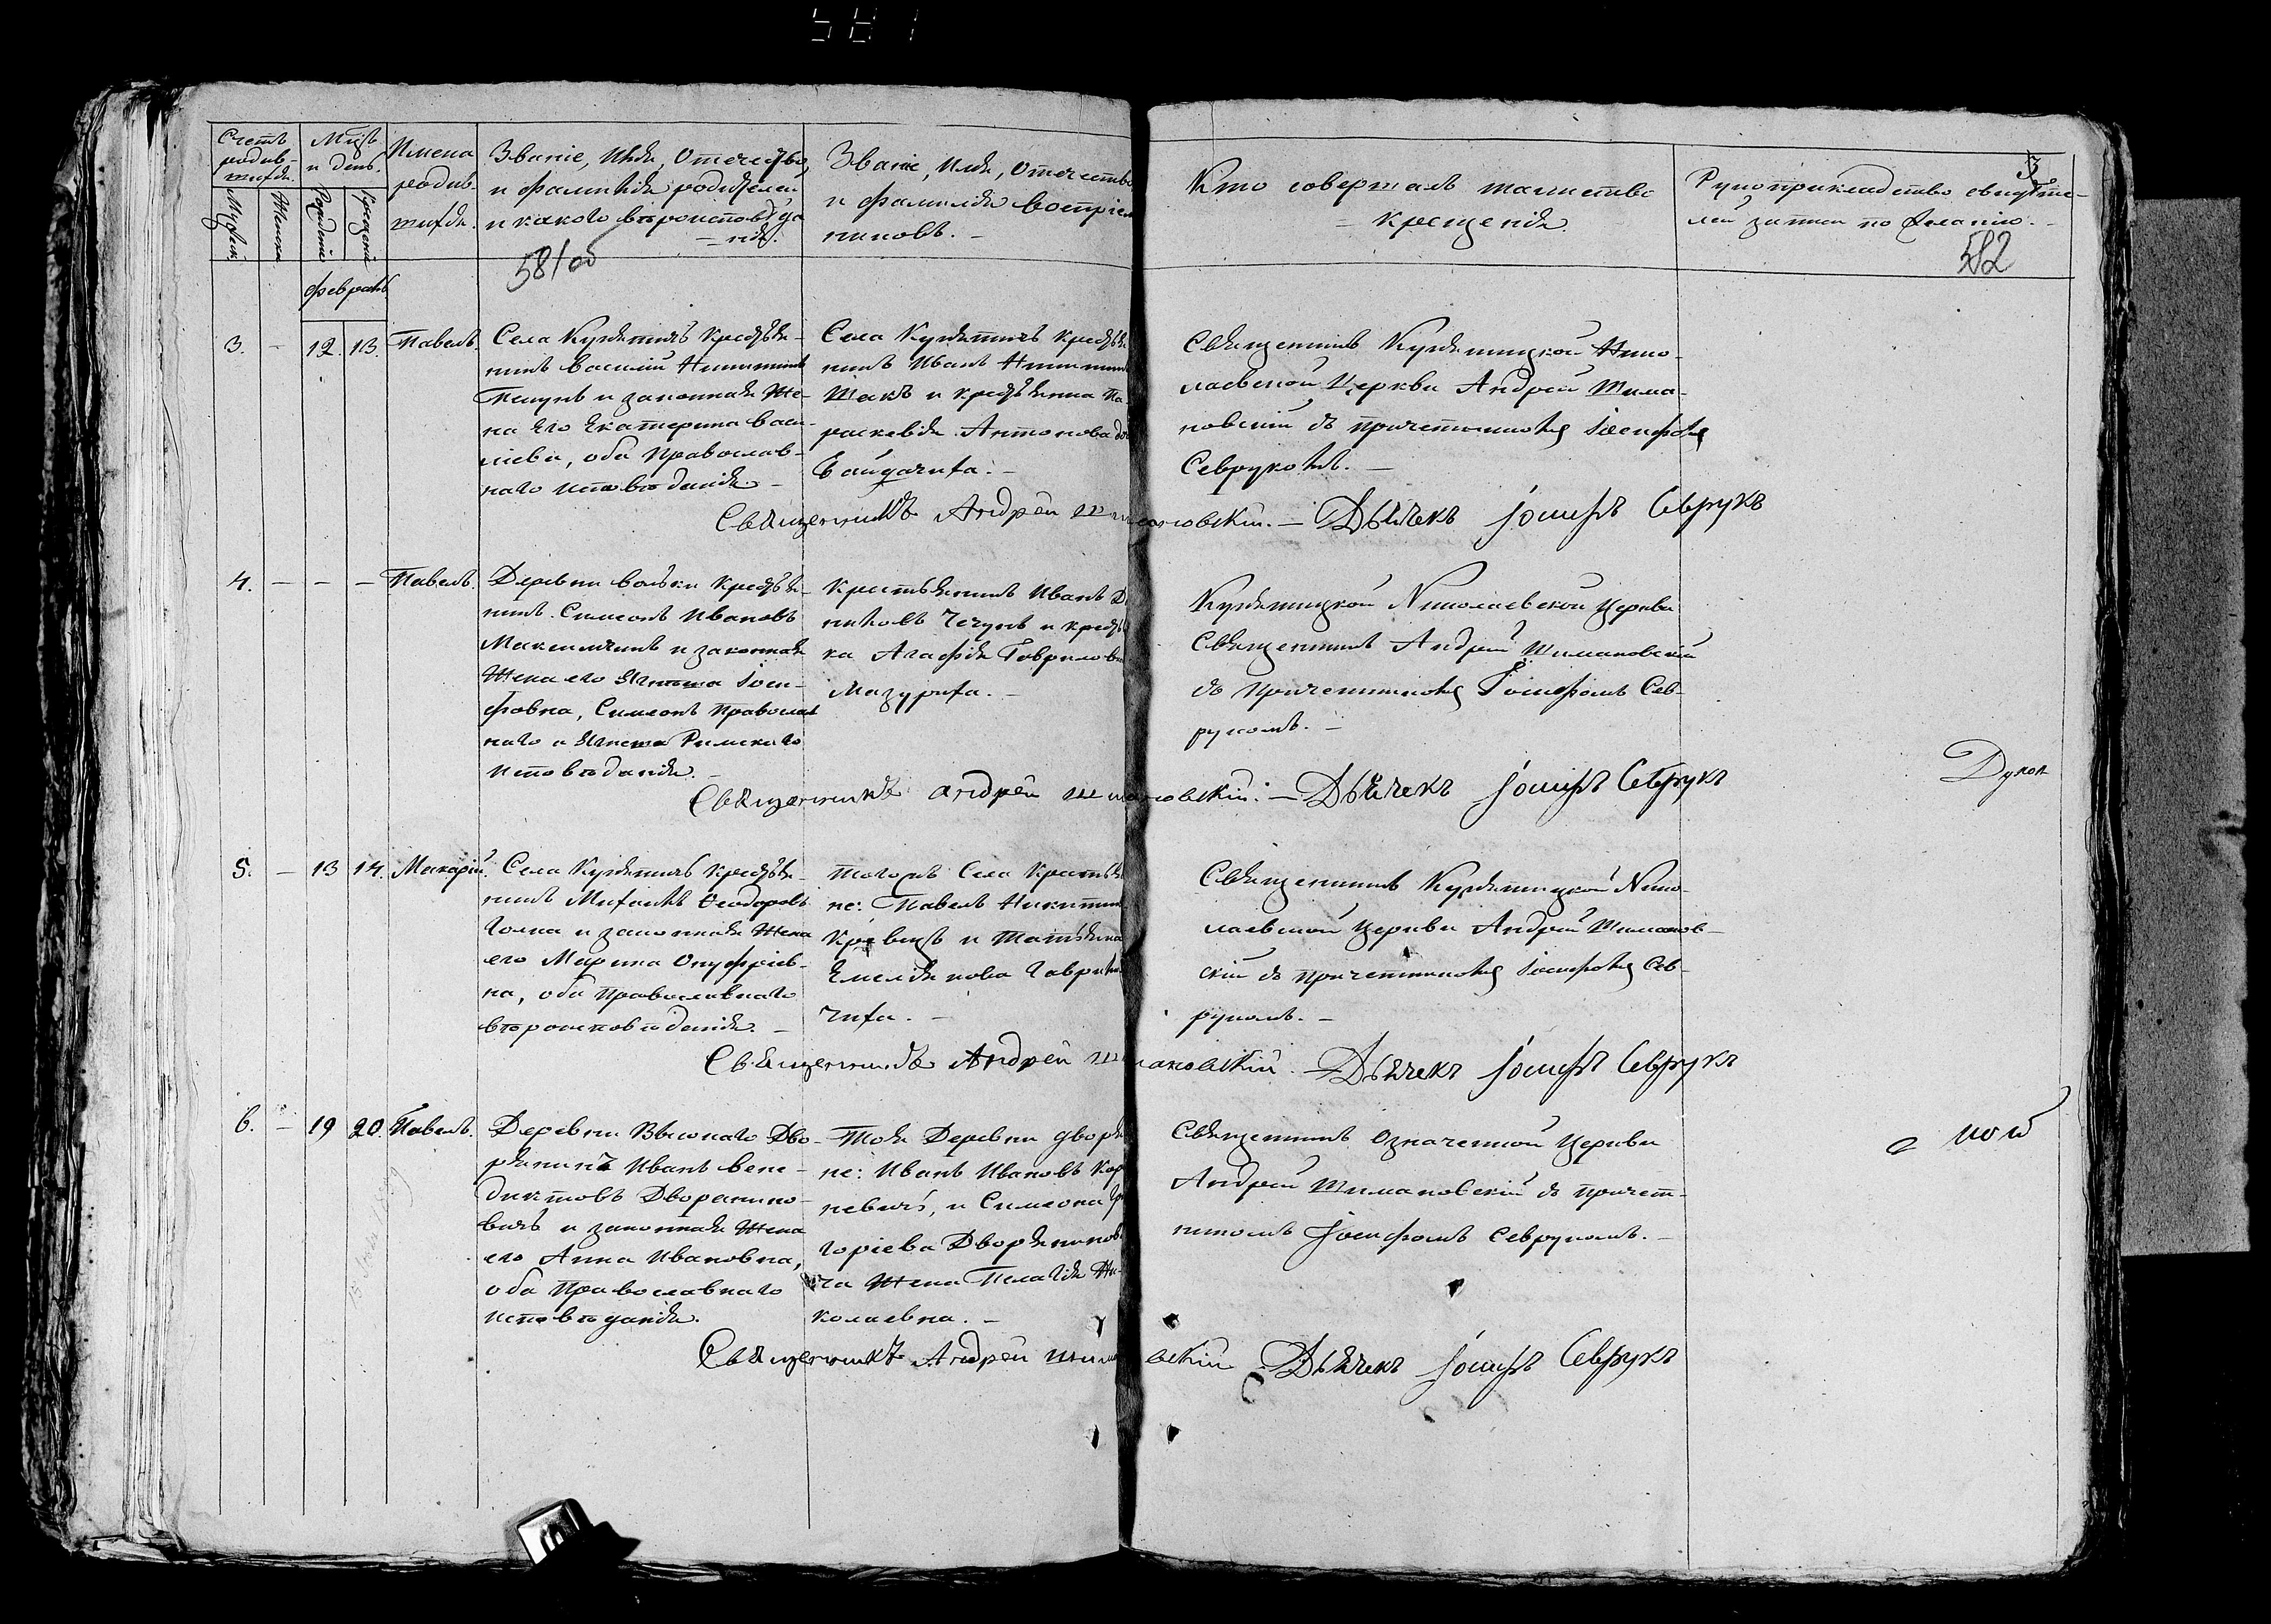 581
Счетъ
родив-
шихся.
Мужеск.
Женск.
Мцъ
и день.
Рожденія
Крещенія
Имена
родив
шихся.
Званіе, Имя, Отечество,
и фамилія родителей
и какого вѣроисповѣда
= нія.
58/об
Званіе, Имя, Отечество
и фамилія воспріем
никовъ. -
Кто совершалъ таинство
= крещенія.
3
Рукоприкладство свидѣте-
лей записи по желанію. -
582
февраль
3. - 12. 13. Павелъ.
Села Кужеличъ Крестья-
нинъ Василій Никитинъ
и законная Же-
на Его Екатерина Васи-
ліева, оба Православ-
наго исповѣданія. -
Села Кужеличъ Крестья
нинъ Иванъ Никитинъ
и крестьянка Па-
раскевія Антонова
Священникъ Нико-
лаевской Церкви Андрей Шима-
новскій съ причетникомъ Іосифомъ
Севрукомъ. -
Священникъ Андрей Шимановскій. - Дьячекъ Іосифъ Севрукъ
4. - - - Павелъ.
Деревни Крестья-
нинъ Симеонъ Ивановъ
и законная
Жена его Іоси-
фовна, Симеонъ Православ
наго и Римскаго
исповѣданія. -
Крестьянинъ Иванъ
и крестья
ка Агафія Гаврилова
Мазуриха. -
Николаевской Церкви
Священникъ Андрей Шимановскій
съ Причетникомъ Іосифомъ Сев-
рукомъ. -
Священникъ Андрей Шимановскій. - Дьячекъ Іосифъ Севрукъ
5. - 13 14. Макарій.
Села Крестья-
нинъ Михаилъ Феодоровъ
и законная Жена
его Марина Онуфріев-
на, оба Православнаго
вѣроисповѣданія. -
Тогожъ Села Крестья
не: Павелъ Никитинъ
и Татьяна
Емельянова
чиха. -
Священникъ Нико-
лаевской Церкви Андрей Шиманов-
скій съ Причетникомъ Іосифомъ Сев-
рукомъ. -
Священникъ Андрей Шимановскій. - Дьячекъ Іосифъ Севрукъ
6. - 19 20. Павелъ.
Деревни Высокаго Дво-
рянинъ Иванъ Вене-
диктовъ Дворанино-
вичъ и законная Жена
его Анна Ивановна,
оба Православнаго
исповѣданія.
Тоя Деревни дворя
не: Иванъ Ивановъ Кор
невичъ, и Симеона Гри
горіева Дворянинови
ча Жена Пелагія Ни-
колаевна. -
Священникъ Означенной Церкви
Андрей Шимановскій съ причет-
никомъ Іосифомъ Севрукомъ. -
Священникъ Андрей Шимановскій Дьячекъ Іосифъ Севрукъ